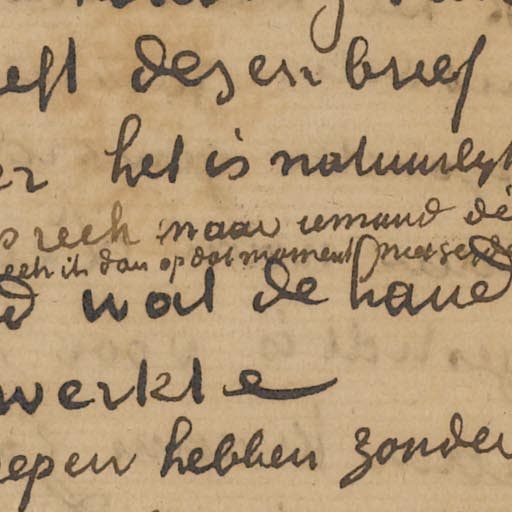 eft desen brief
er het is natuurlyk
s reek naar iemand de
eek ik dan op dat moment met
d wat de hand
werkte
epen hebben zonder